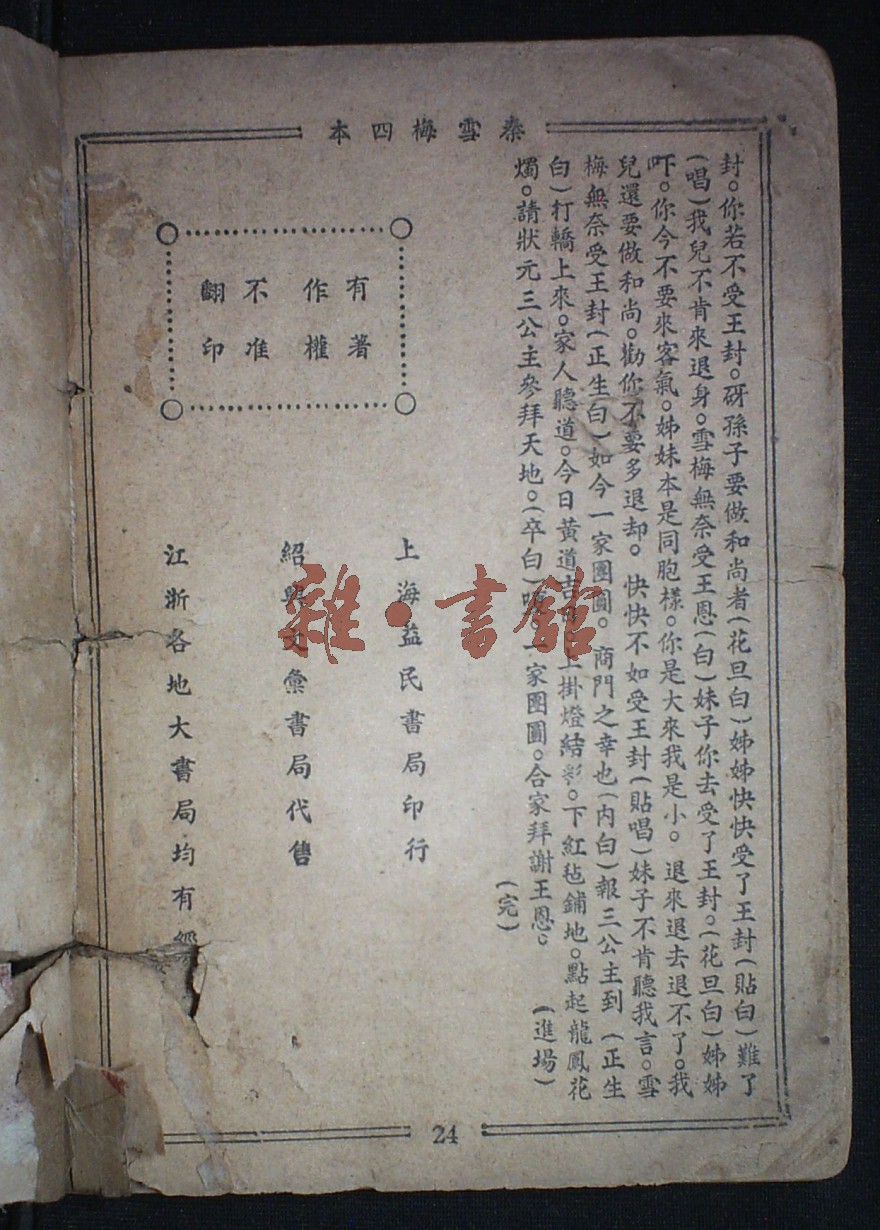 秦雪梅四本
封。你若不受王封。砑孫子要做和尚者(花旦白)姊姊快快受了王封(貼白)難了
(唱)我兒不肯來退身。雪梅無奈受王恩(白)妹子你去受了王封。(花旦白)姊姊
吓。你今不要來客氣。姊妹本是同胞樣。你是大來我是小。退來退去退不了。我
兒還要做和尚。勸你不要多退却。快快不如受王封(貼唱)妹子不肯聽我言。雪
梅無奈受王封(正生白)如今一家團圓。商門之幸也(内白)報三公主到(正生
白)打轎上來。家人聽道。今日黃道吉 上掛燈結彩。下紅毡鋪地。點起龍鳳花
燭。請狀元三公主參拜天地。(卒白) 一家團圓。合家拜謝王恩。(進場)
(完)
有著
作權
不准
翻印
上海益民書局印行
紹興文彙書局代售
江浙各地大書局均有
24
雜·書館